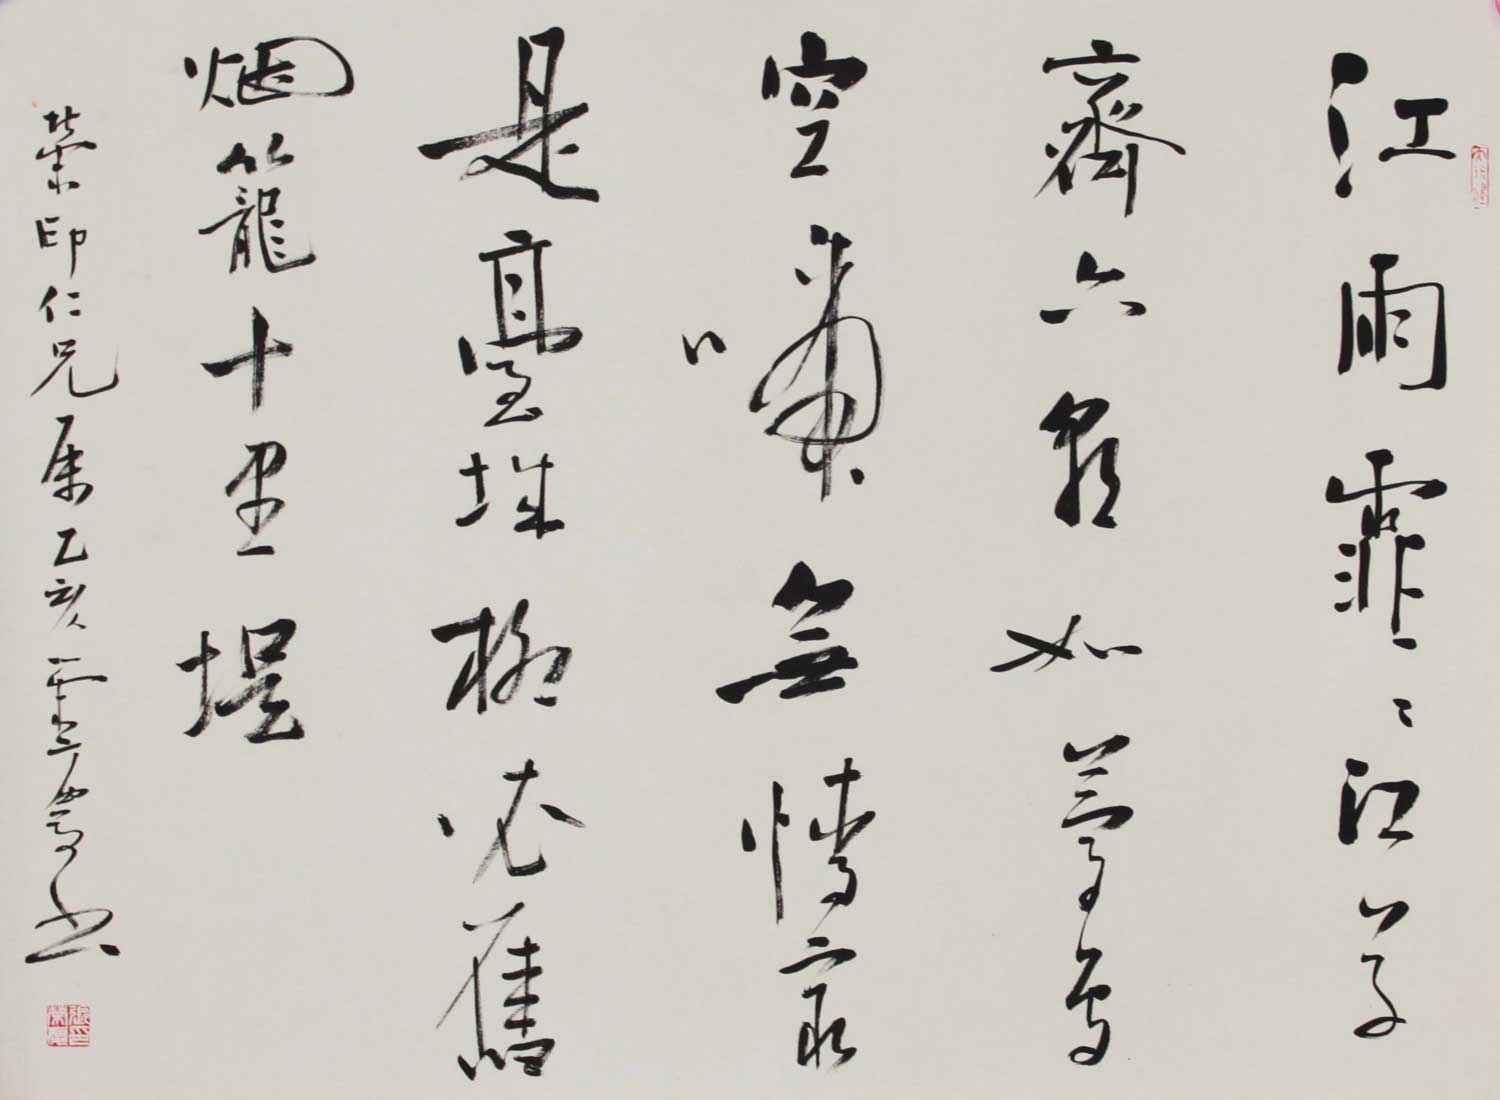 江雨霏〻江草
齊六朝如夢鳥
空啼無情最
是臺城柳依舊
烟籠十里堤
榮印仁兄属乙亥書